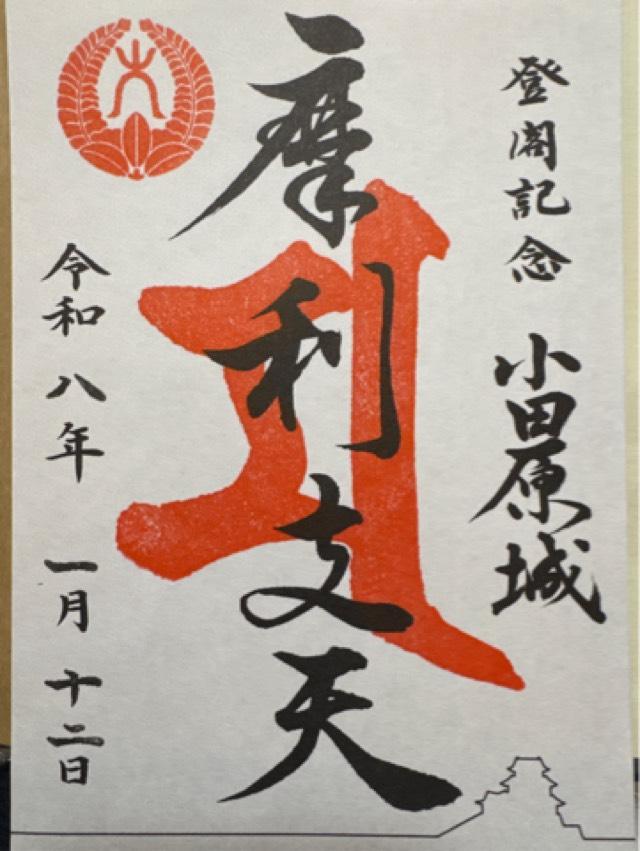 登閣記念 小田原城
摩利支天
令和八年 一月 十二日